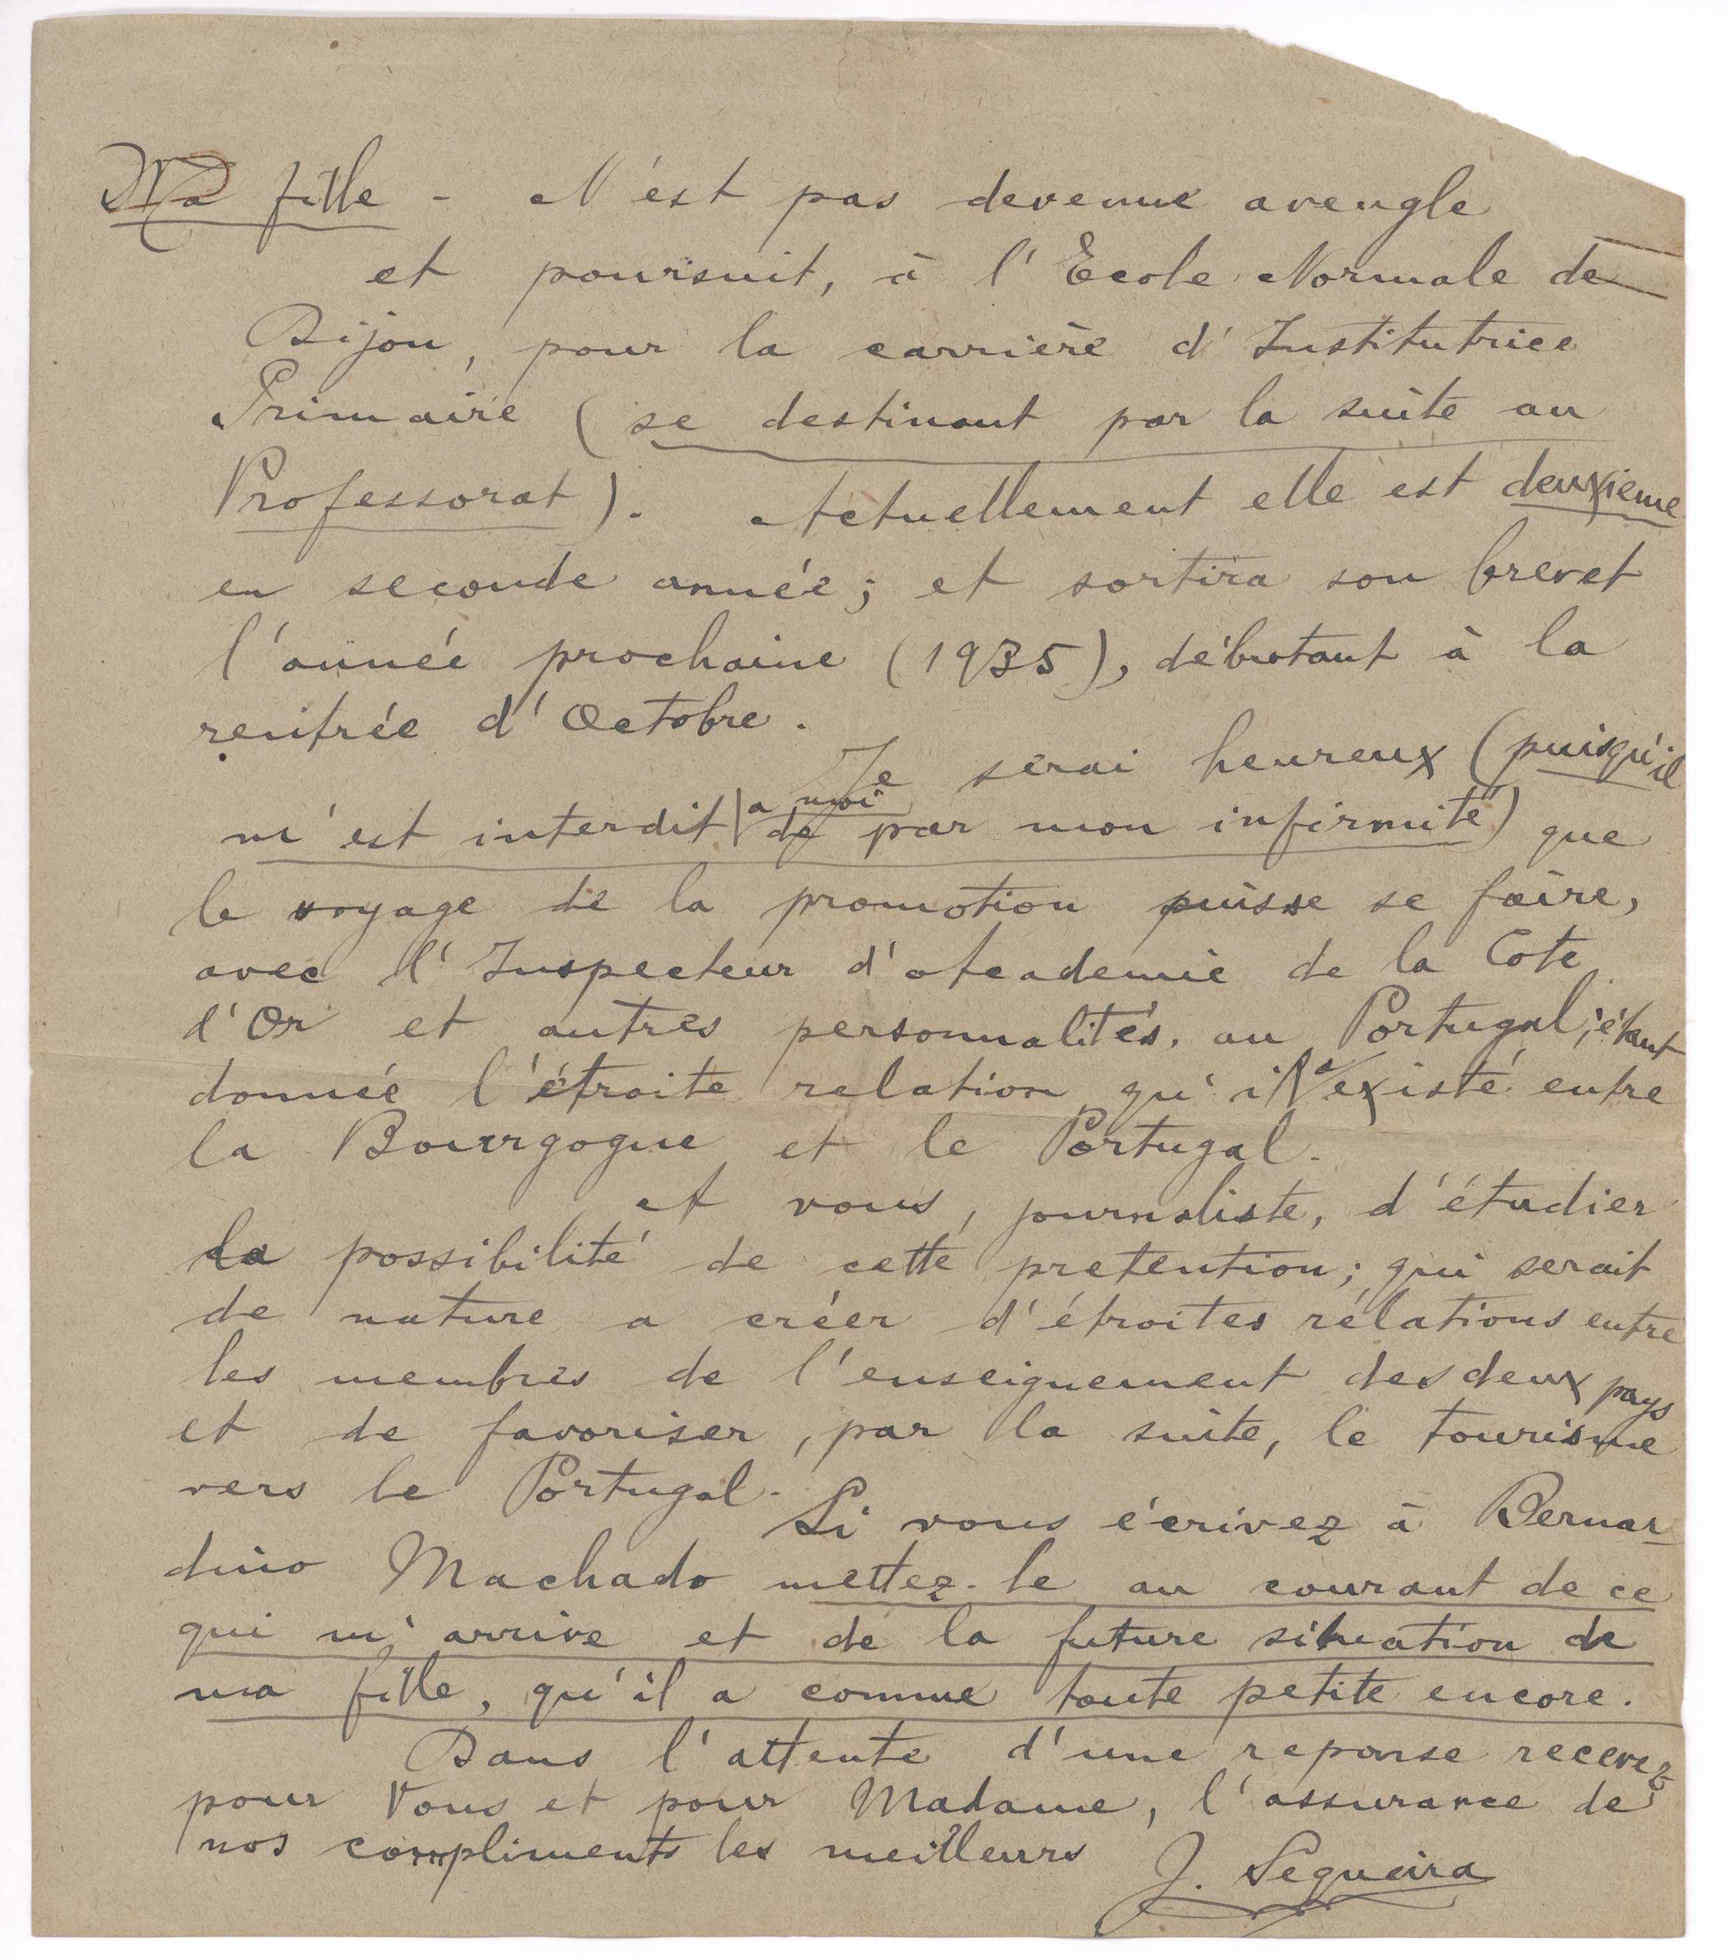 Ma fille - N'est pas devenue aveugle
et poursuit, à l'Ecole Normale de
Dijon, pour la carrière d'Institutrice
Primaire (se destinant par la suite au
Professorat). Actuellement elle est deuxieme
en seconde année; et sortira son brevet
l'année prochaine (1935), débutant à la
rentrée d'Octobre.
Je serai heureux (puisqu'il
m'est interdit a moi de par mon infirmité) que
le voyage de la promotion puisse se faire,
avec l'Inspecteur d'Academie de la Cote
d'Or et autres personnalités, au Portugal; étant
donnée l'étroite relation qu'il a existé entre
la Bourgogne et le Portugal.
A vous, journaliste, d'étudier
la possibilité de cette pretention; qui serait
de nature a créer d'étroites rélations entre
les membres de l'enseignement des deux pays
et de favoriser, par la suite, le tourisme
vers le Portugal.
Si vous écrivez à Bernar-
dino Machado mettez-le au courant de ce
qui m'arrive et de la future situation de
ma fille, qu'il a connue toute petite encore.
Dans l'attente d'une reponse recevez
pour Vous et pour Madame, l'assurance de
nos compliments les meilleurs
J. Sequeira